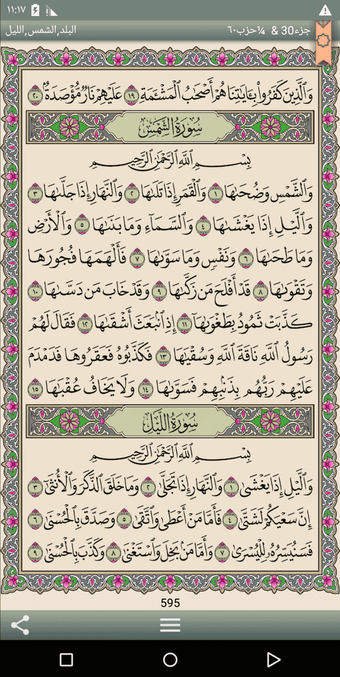 ١١:١٧
جزء30 & ¼حزب٦٠
البلد,الشمس,الليل
وَٱلَّذِينَ كَفَرُوا۟ بِـَٔايَٰتِنَا هُمْ أَصْحَٰبُ ٱلْمَشْـَٔمَةِ ١٩ عَلَيْهِمْ نَارٌ مُّؤْصَدَةٌۢ ٢٠
سُورَةُ الشَّمْسِ
بِسْمِ ٱللَّهِ ٱلرَّحْمَٰنِ ٱلرَّحِيمِ
وَٱلشَّمْسِ وَضُحَىٰهَا ١ وَٱلْقَمَرِ إِذَا تَلَىٰهَا ٢ وَٱلنَّهَارِ إِذَا جَلَّىٰهَا ٣
وَٱلَّيْلِ إِذَا يَغْشَىٰهَا ٤ وَٱلسَّمَآءِ وَمَا بَنَىٰهَا ٥ وَٱلْأَرْضِ
وَمَا طَحَىٰهَا ٦ وَنَفْسٍ وَمَا سَوَّىٰهَا ٧ فَأَلْهَمَهَا فُجُورَهَا
وَتَقْوَىٰهَا ٨ قَدْ أَفْلَحَ مَن زَكَّىٰهَا ٩ وَقَدْ خَابَ مَن دَسَّىٰهَا ١٠
كَذَّبَتْ ثَمُودُ بِطَغْوَىٰهَآ ١١ إِذِ ٱنۢبَعَثَ أَشْقَىٰهَا ١٢ فَقَالَ لَهُمْ
رَسُولُ ٱللَّهِ نَاقَةَ ٱللَّهِ وَسُقْيَٰهَا ١٣ فَكَذَّبُوهُ فَعَقَرُوهَا فَدَمْدَمَ
عَلَيْهِمْ رَبُّهُم بِذَنۢبِهِمْ فَسَوَّىٰهَا ١٤ وَلَا يَخَافُ عُقْبَٰهَا ١٥
سُورَةُ اللَّيْلِ
بِسْمِ ٱللَّهِ ٱلرَّحْمَٰنِ ٱلرَّحِيمِ
وَٱلَّيْلِ إِذَا يَغْشَىٰ ١ وَٱلنَّهَارِ إِذَا تَجَلَّىٰ ٢ وَمَا خَلَقَ ٱلذَّكَرَ وَٱلْأُنثَىٰٓ ٣
إِنَّ سَعْيَكُمْ لَشَتَّىٰ ٤ فَأَمَّا مَنْ أَعْطَىٰ وَٱتَّقَىٰ ٥ وَصَدَّقَ بِٱلْحُسْنَىٰ ٦
فَسَنُيَسِّرُهُۥ لِلْيُسْرَىٰ ٧ وَأَمَّا مَنۢ بَخِلَ وَٱسْتَغْنَىٰ ٨ وَكَذَّبَ بِٱلْحُسْنَىٰ ٩
595